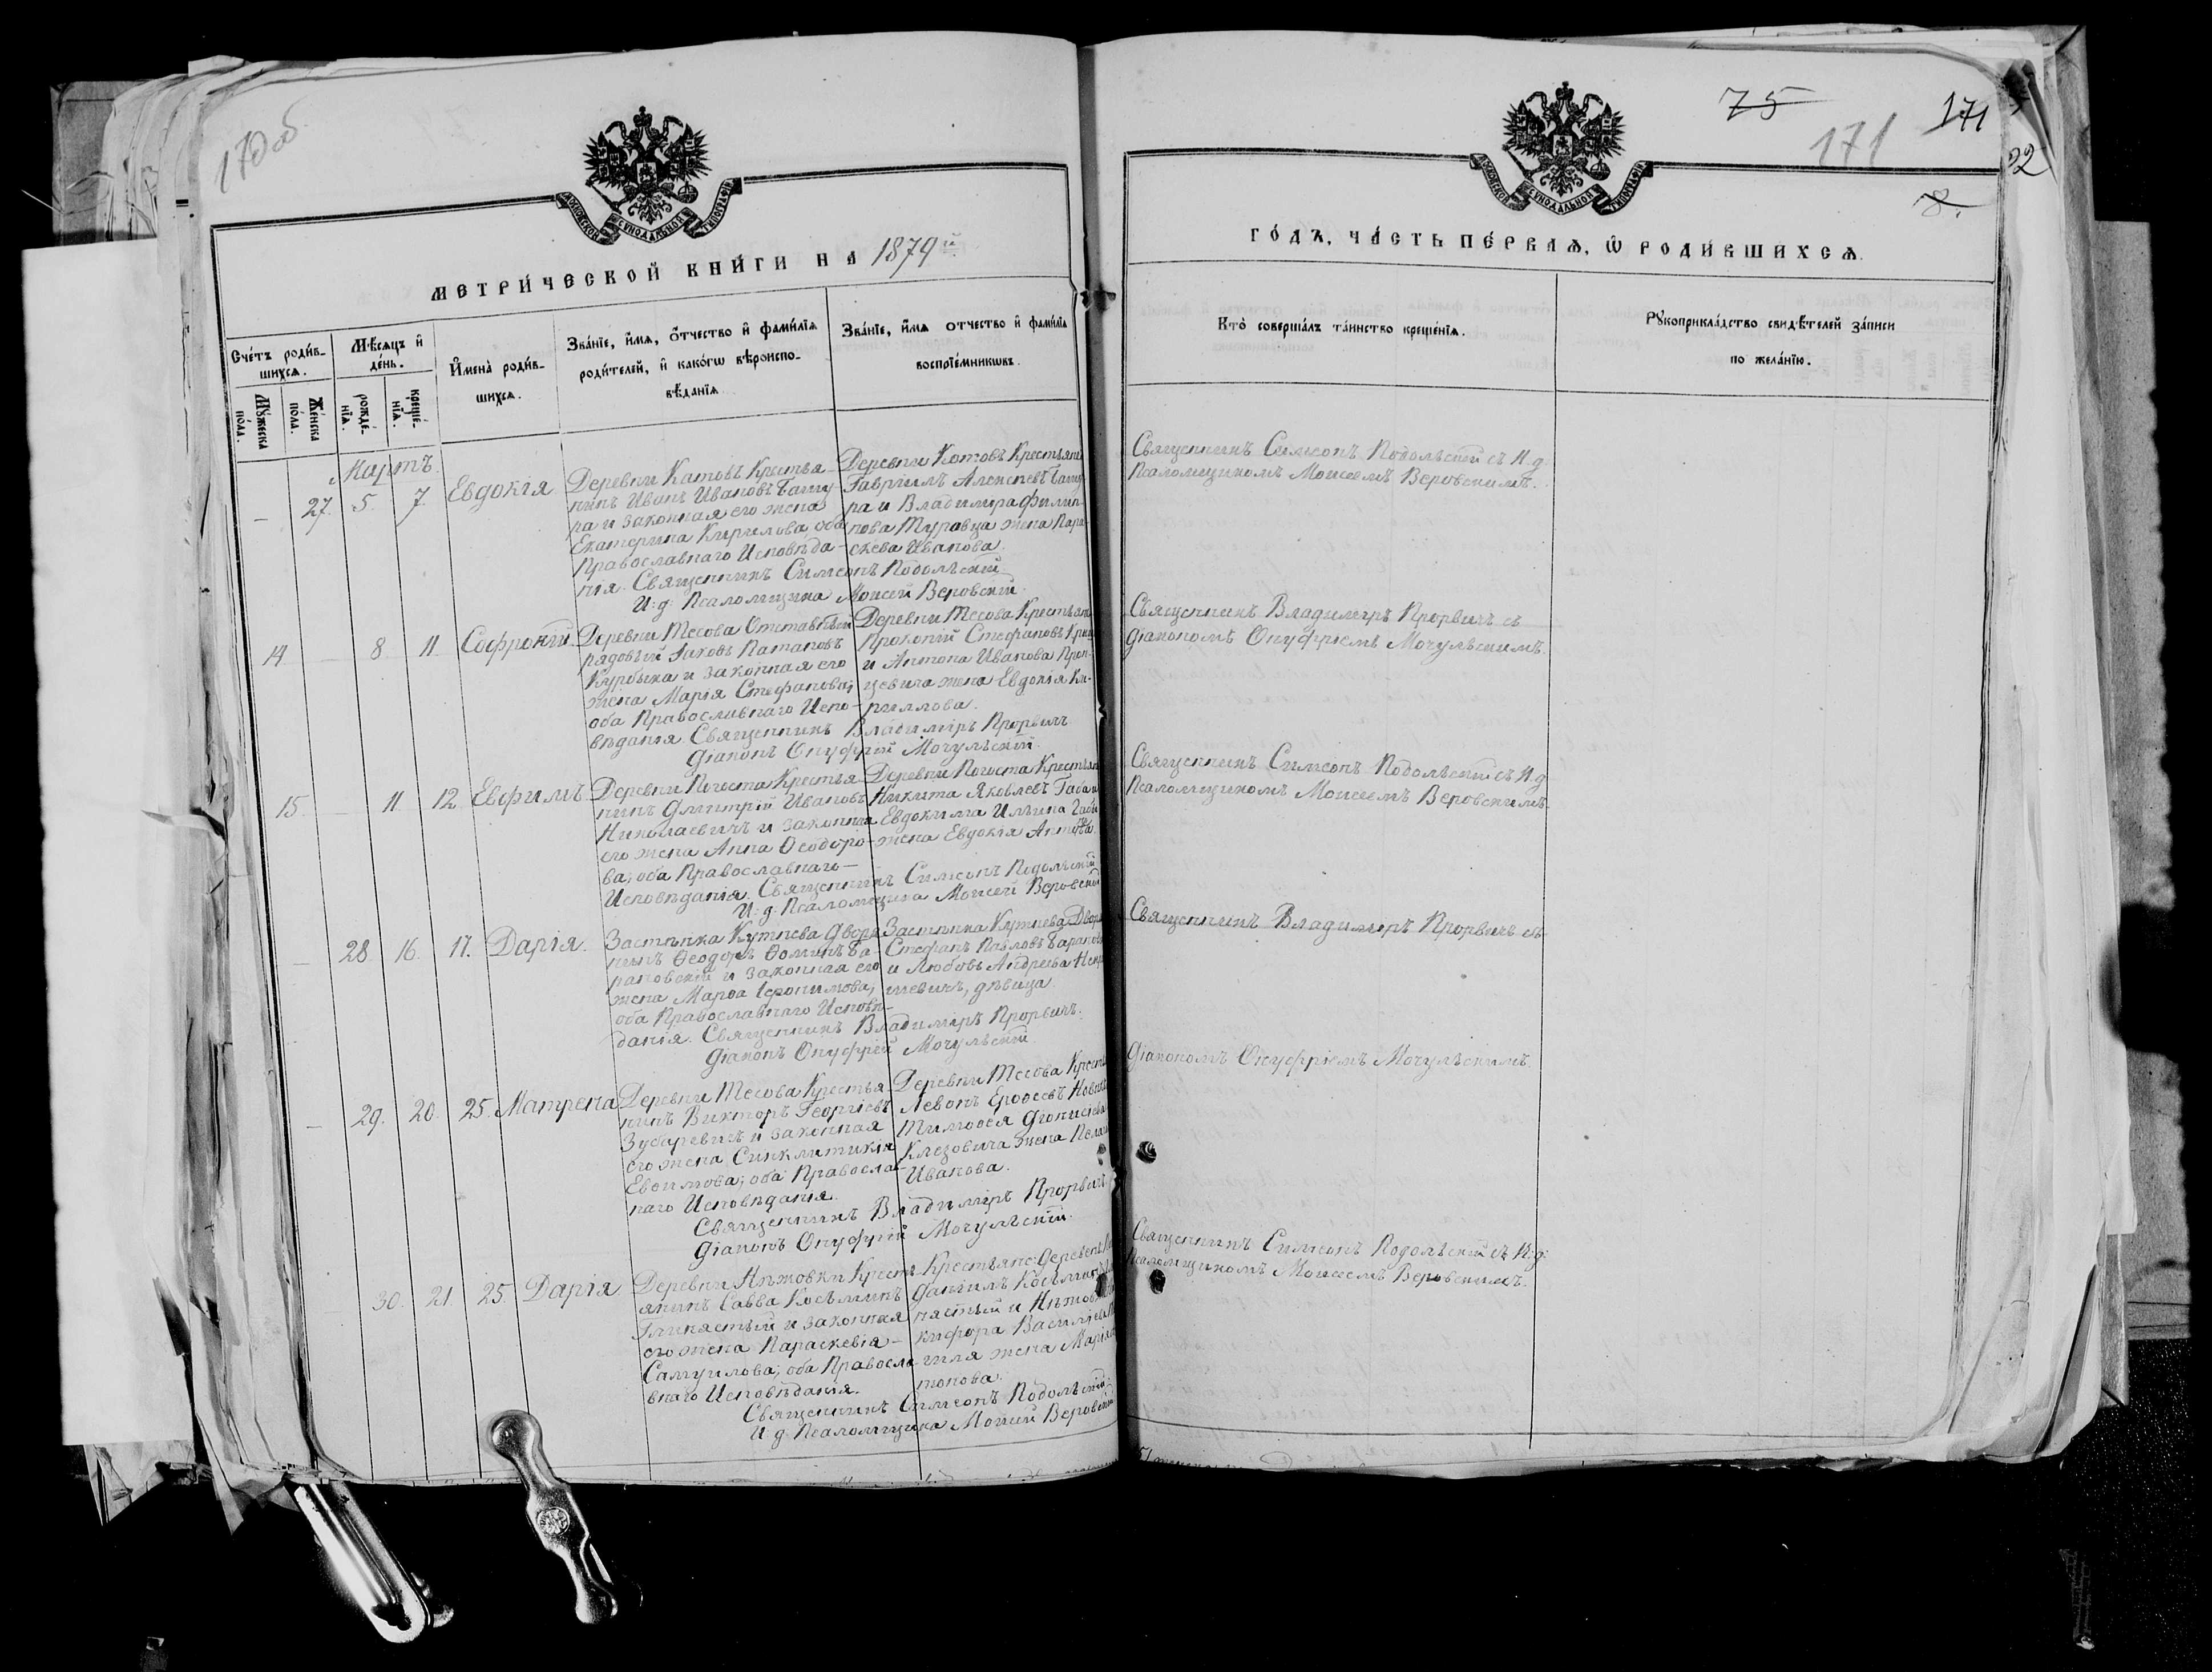 170 об
МОСКОВСКОЙ СУНОДАЛЬНОЙ ТИПОГРАФІИ
МЕТРИ́ЧЕСКОЙ КНИ́ГИ НА 1879й
Сче́тъ роди́в-
шихсѧ.
Мѣ́сѧцъ и҆
де́нь.
И҆мена̀ роди́в-
шихсѧ.
Зва́нїе, и҆́мѧ, ѻ҆́тчество и҆ фами́лїѧ
роди́телей, и҆ како́гѡ вѣ́роиспо-
вѣ́данїѧ
Зва́нїе, и҆́мѧ отчество и҆ фами́лїѧ
воспрїе́мникѡвъ.
Мꙋ́жеска
по́ла.
Же́нска
по́ла.
рожде́-
нїѧ.
креще́-
нїѧ.
Мартъ.
27. 5. 7. Евдокія
Деревни Катовъ Крестья-
нинъ Иванъ Ивановъ Башу-
ра и законная его жена
Екатерина Кирилова, оба
Православнаго Исповѣда-
нія. Священникъ Симеонъ Подольскій
И. д. Псаломщика Моисей Веровскій.
Деревни Котовъ Крестьяне
Гавріилъ Алексѣевъ Башу
ра и Владиміра Филип-
пова Туровца жена Пара-
скева Иванова.
14 8 11 Софроній
Деревни Тесова Отставный
рядовый Іаковъ Патаповъ
Курбыка и законная его
жена Марія Стефанова,
оба Православнаго Испо-
вѣданія. Священникъ Владиміръ Прорвичъ
Діаконъ Онуфрій Мочульскій.
Деревни Тесова Крестьяне
Прокопій Стефановъ
и Антона Иванова
жена Евдокія Ки-
риллова.
15. 11. 12. Евфимъ
Деревни Погоста Крестья-
нинъ Димитрій Ивановъ
Николаевичъ и законная
его жена Анна Ѳеодоро-
ва; оба Православнаго
Исповѣданія. Священникъ Симеонъ Подольскій
И. д. Псаломщика Моисей Веровскій
Деревни Погоста Крестьян
Никита Яковлевъ
Евдокима Ильина
жена Евдокія
28. 16. 17. Дарія.
Застѣнка Кутнева Дворя
нинъ Ѳеодоръ Ѳоминъ Ба-
рановскій и законная его
жена Марѳа Іеронимова,
оба Православнаго Исповѣ-
данія. Священникъ Владиміръ Прорвичъ.
Діаконъ Онуфрій Мочульскій.
Застѣнка Кутнева Дворя
Стефанъ Павловъ Баранов
и Любовь Андреева
девица.
29. 20. 25. Матрена
Деревни Тесова Крестья-
нинъ Викторъ Георгіевъ
Зубаревичъ и законная
его жена Синклитикія
Евѳимова; оба Правосла-
наго Исповѣданія.
Священникъ Владиміръ Прорвичъ
Діаконъ Онуфрій Мочульскій.
Деревни Тесова Крестья
Левонъ Ероѳеевъ
Тимоѳея Діонисіева
Клезовича жена
Иванова.
30. 21. 25. Дарія
Деревни Нѣжовки Кресть
янинъ Савва Косьминъ
и законная
его жена Параскевія
Самуилова; оба Правосла
внаго Исповѣданія.
Священникъ Симеонъ Подольскій
И. д. Псаломщика Моисей Веровскій
Крестьяне: Деревень
Даніилъ Косьминъ
кифора Василіева
жена Марія
75
171
171
22
8.
МОСКОВСКОЙ СУНОДАЛЬНОЙ ТИПОГРАФІИ
ГО́ДЪ, ЧА́СТЬ ПЕ́РВАѦ, Ѽ РОДИ́ВШИХСѦ.
Кто̀ соверша́лъ та́инство креще́нїѧ.
Рꙋкоприкла́дство свидѣ́телей за́писи
по жела́нїю.
Священникъ Симеонъ Подольскій съ И. д.
Псаломщикомъ Моисеемъ Веровскимъ.
Священникъ Владиміръ Прорвичъ съ
Діакономъ Онуфріемъ Мочульскимъ.
Священникъ Симеонъ Подольскій съ И. д.
Псаломщикомъ Моисеемъ Веровскимъ.
Священникъ Владиміръ Прорвичъ съ
Діакономъ Онуфріемъ Мочульскимъ.
Священникъ Симеонъ Подольскій съ И. д.
Псаломщикомъ Моисеемъ Веровскимъ.